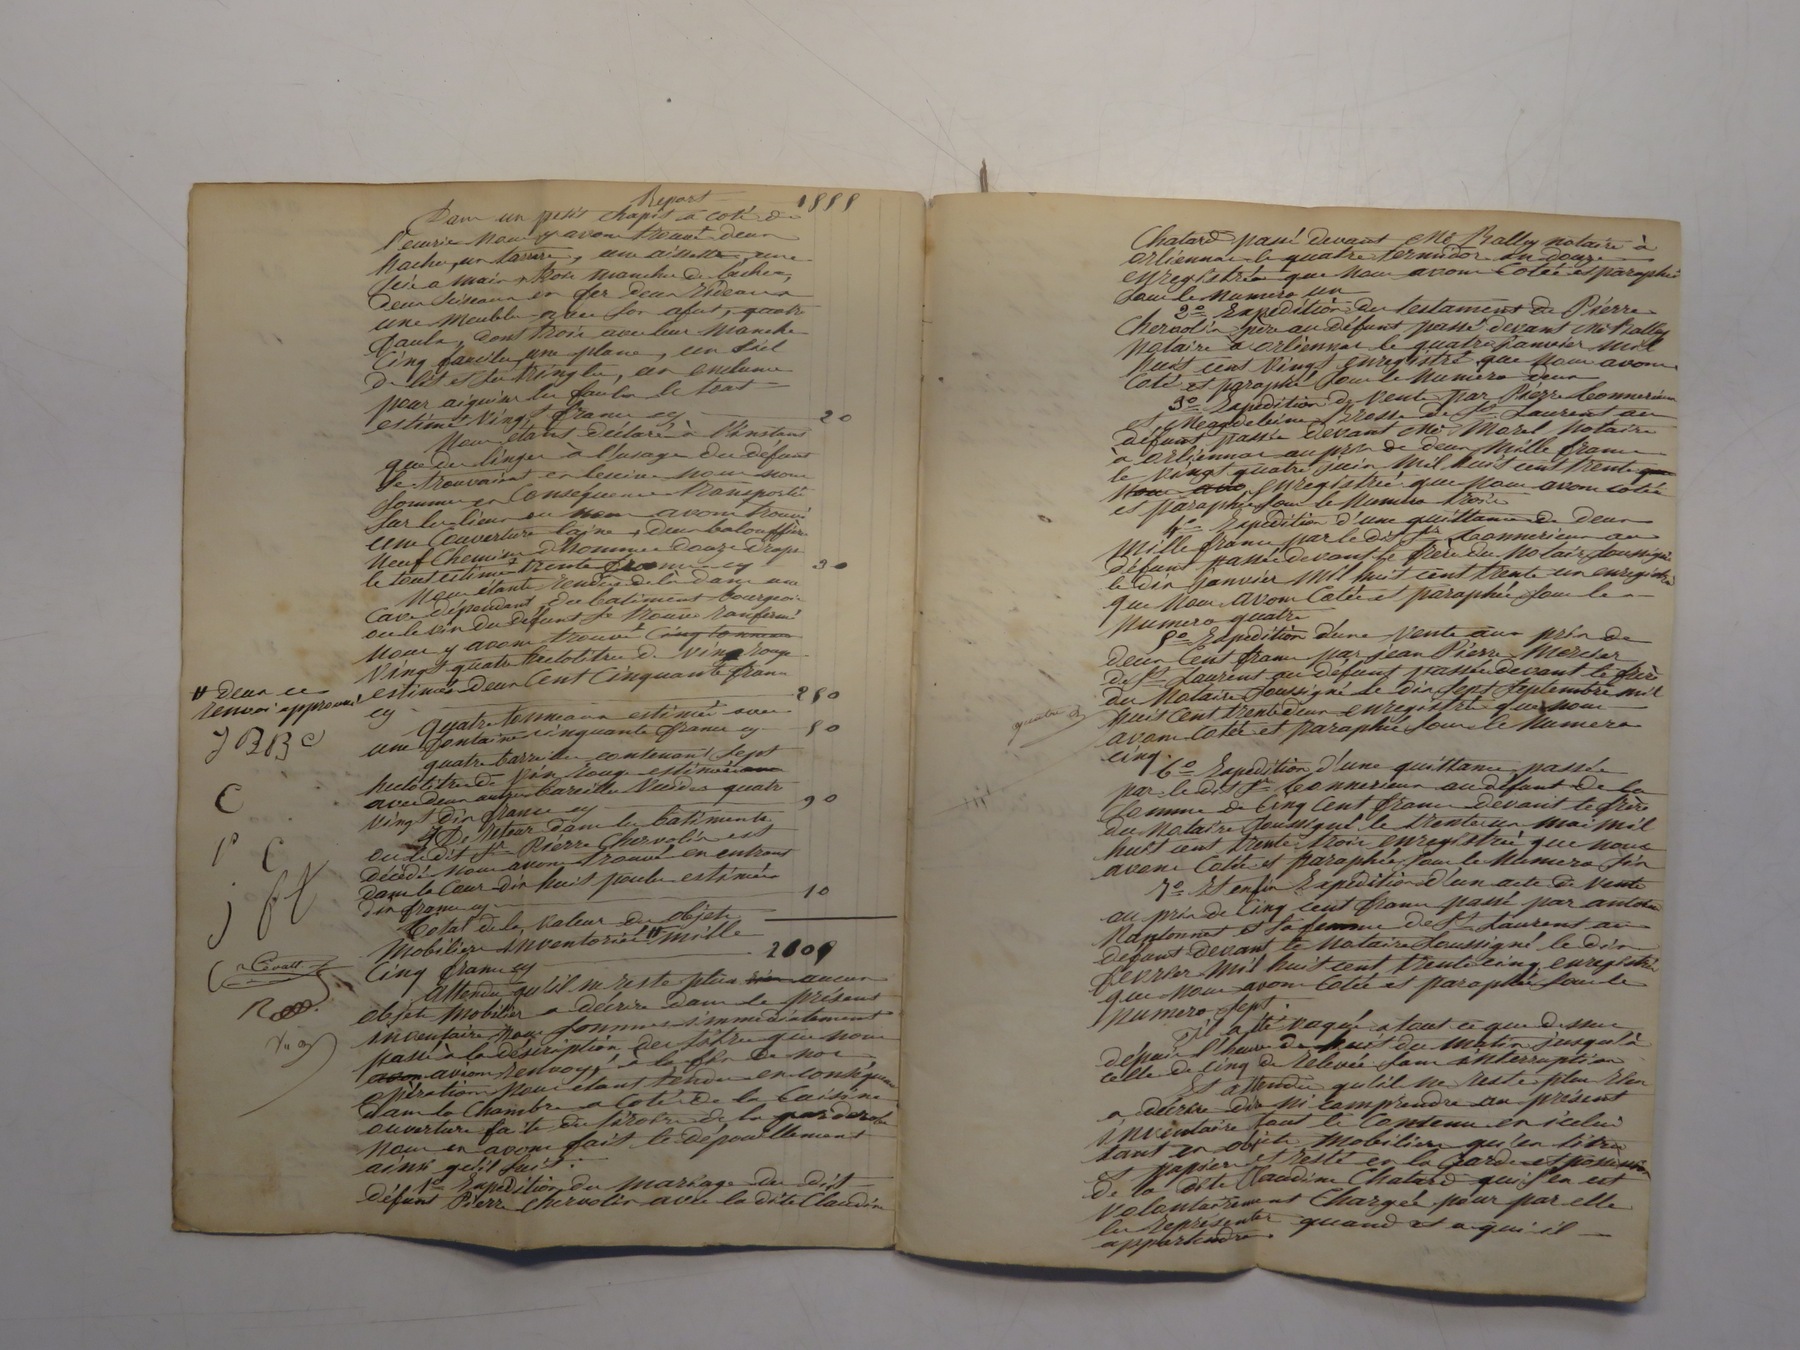 Report 1555
Dans un petit chapit à coté de
l'écurie nous y avons trouvé deux
haches, un tarere, une aissette, une
scie a main, trois manches de haches,
deux ciseaux en fer deux rideaux
une meuble avec son afut, quatre
faulx, dont trois avec leur manche
cinq faucilles, une plane, un ciel
de lit et sa tringle, un enclume
pour aiguiser les faulx le tout
estimé vingt francs cy 20
Nous étant déclaré à l'instant
que du linge à l'usage du défunt
se trouvait en lessive nous nous
sommes en conséquence transporté
sur les lieux ou nous avons trouvé
une couverture laine, deux
neuf chemises d'hommes douze draps
le tout estimé trente francs cy 30
Nous étants rendus delà dans une
cave dépendant du batiment bourgeois
ou le vin du défunt se trouve renfermé
nous y avons trouvé cinq tonneaux
vingt quatre hectolitres de vin rouge
estimés deux cent cinquante francs
cy 250
quatre tonneaux estimés avec
une fontaine cinquante francs cy 50
quatre barriques contenant sept
hectolitres de vin rouge estimés
avec deux autres bareilles vuides quatre
vingt dix francs cy 90
De retour dans le batiments
ou le dit Sr Pierre Chervolin est
décédé nous avons trouvé en entrant
dans la cour dix huit poules estimées
dix francs cy 10
Total de la valeur des objets
mobiliers inventoriés " mille
cinq francs cy 2005
Attendu qu'il ne reste plus rien aucun
objets mobilier a décrire dans le présent
inventaire nous sommes immédiatement
passé à la désiription des titres que nous
avons avions renvoyé à la fin de nos
opérations nous étant rendu en conséquence
dans la chambre a coté de la cuisine
ouverture faite du tiroir de la garderobe
nous en avons fait le dépouillement
ainsi qu'il suit :
1o Expédition du mariage du dit
défunt Pierre Chervolin avec la dite Claudine
" deux ce
renvoi approuvé
J B B C
C
P C
j
Chatard passé devant Me Rally notaire à
orliennas le quatre termidor an douze
enregistrée que nous avons cotée et paraphé
sous le numero un
2o Expédition du testament de Pierre
Chervolin père au défunt passé devant Me Rally
notaire à orliennas le quatre janvier mil
huit cent vingt enregistré que nous avons
coté et paraphé sous le numero deux
3o Expédition de vente par Pierre Connerieux
et Magdeleine Presse de St Laurent au
défunt passée devant Me Morel notaire
à orliennas au prix de deux mille francs
le vingt quatre juin mil huit cent trente que
nous avo enregistrée que nous avons cotée
et paraphée sous le numero trois
4o Expédition d'une quittance de deux
mille francs par le dit Sr Connerieux au
défunt passée devant le frère du notaire soussigné
le dix janvier mil huit cent trente un enregistrée
que nous avons cotée et paraphée sous le
numero quatre
5o Expédition d'une vente aux prix de
deux cent francs par jean Pierre Mercier
de St Laurent au défunt passée devant le frère
du notaire soussigné le dix sept septembre mil
huit cent trente deux enregistré que nous
avons cotée et paraphée sous le numero
cinq.
6o Expédition d'une quittance passée
par le dit Sr Connerieux au défunt de la
somme de cinq cent francs devant le frère
du notaire soussigné le trente un mai mil
huit cent trente trois enregistrée que nous
avons cotée et paraphée sous le numero six
7o Et enfin Expédition d'un acte de vente
au prix de cinq cent francs passé par antoine
Nantonnet et sa femme de St Laurent au
défunt devant le notaire soussigné le dix
fevrier mil huit cent trente cinq enregistré
que nous avons cotée et paraphée sous le
numero sept.
Il a été vaqué a tout ce que dessus
depuis l'heure de huit du matin jusqu'à
celle de cinq de relevée sans interruption
Et attendu qu'il ne reste plus rien
a décrire dire ni comprendre au présent
inventaire tout le contenu en icelui
tant en objets mobiliers qu'en titres
et papiers est resté en la garde et possession
de la dite Claudine Chatard qui s'en est
volontairement chargée pour par elle
les représenter quand et a qui il
appartiendra.